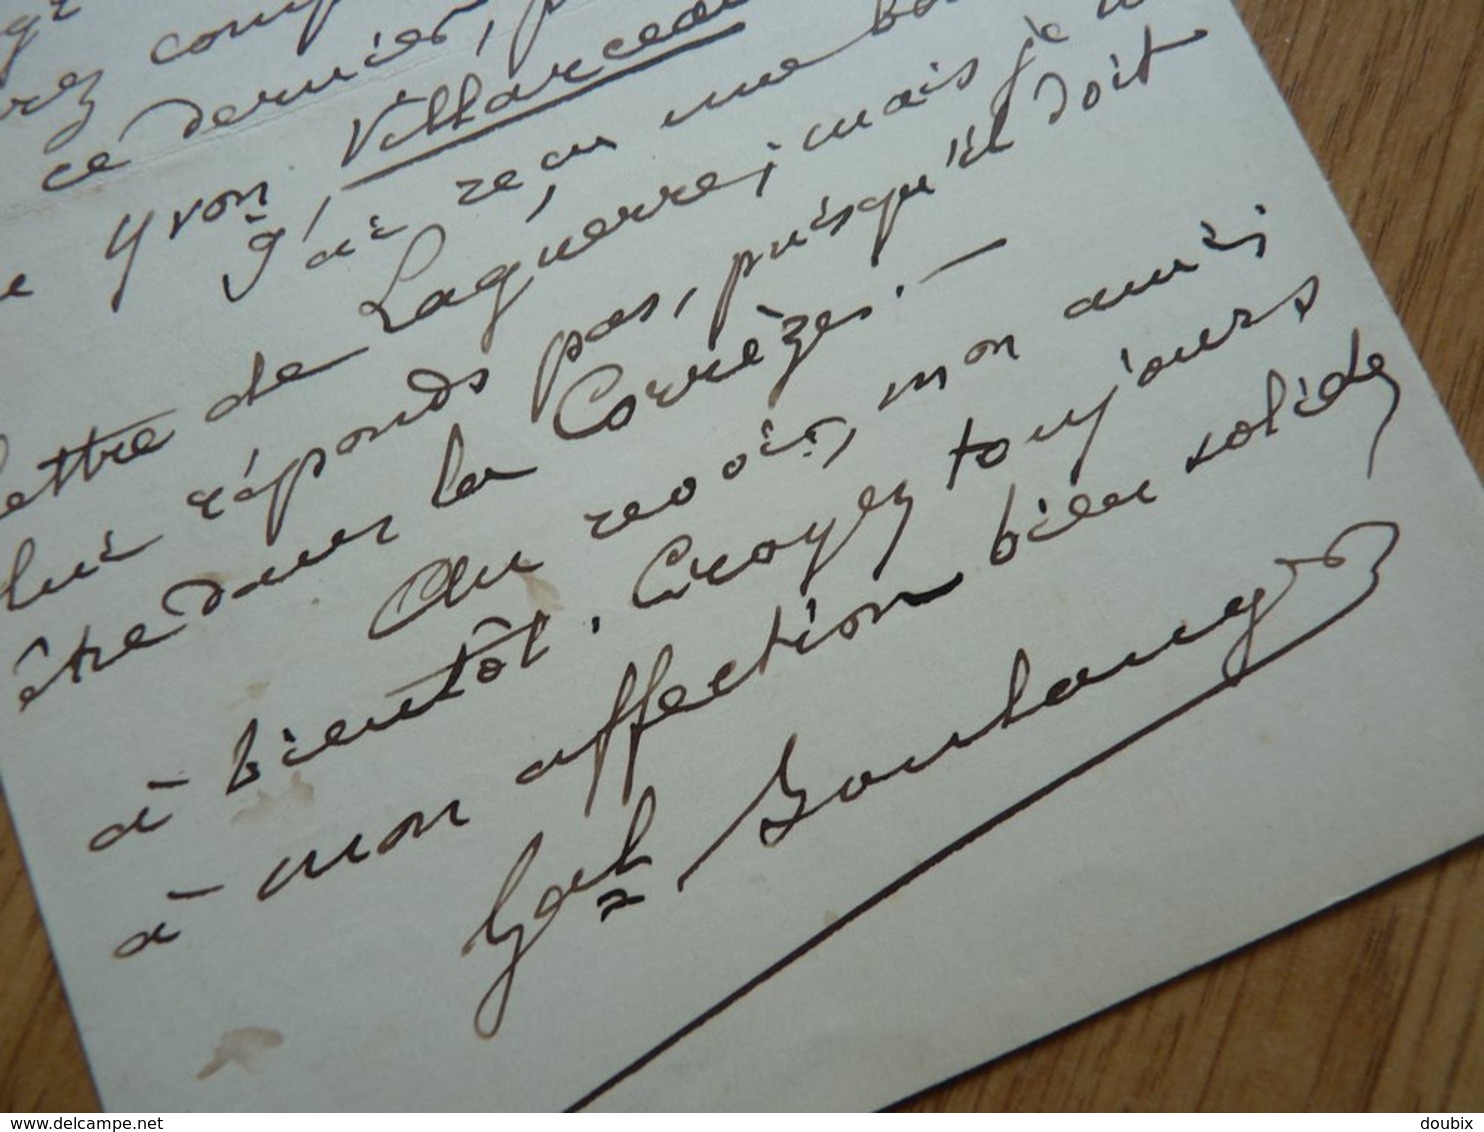 ce dernier,
Yvon Villarceau
J'ai reçu une
lettre de Laguerre; mais je
lui réponds pas, puisqu'il doit
être dans la Corrèze. —
Au revoir, mon ami;
à bientôt. Croyez toujours
à mon affection bien solide,
Gal Boulanger
www.delcampe.net
doubix